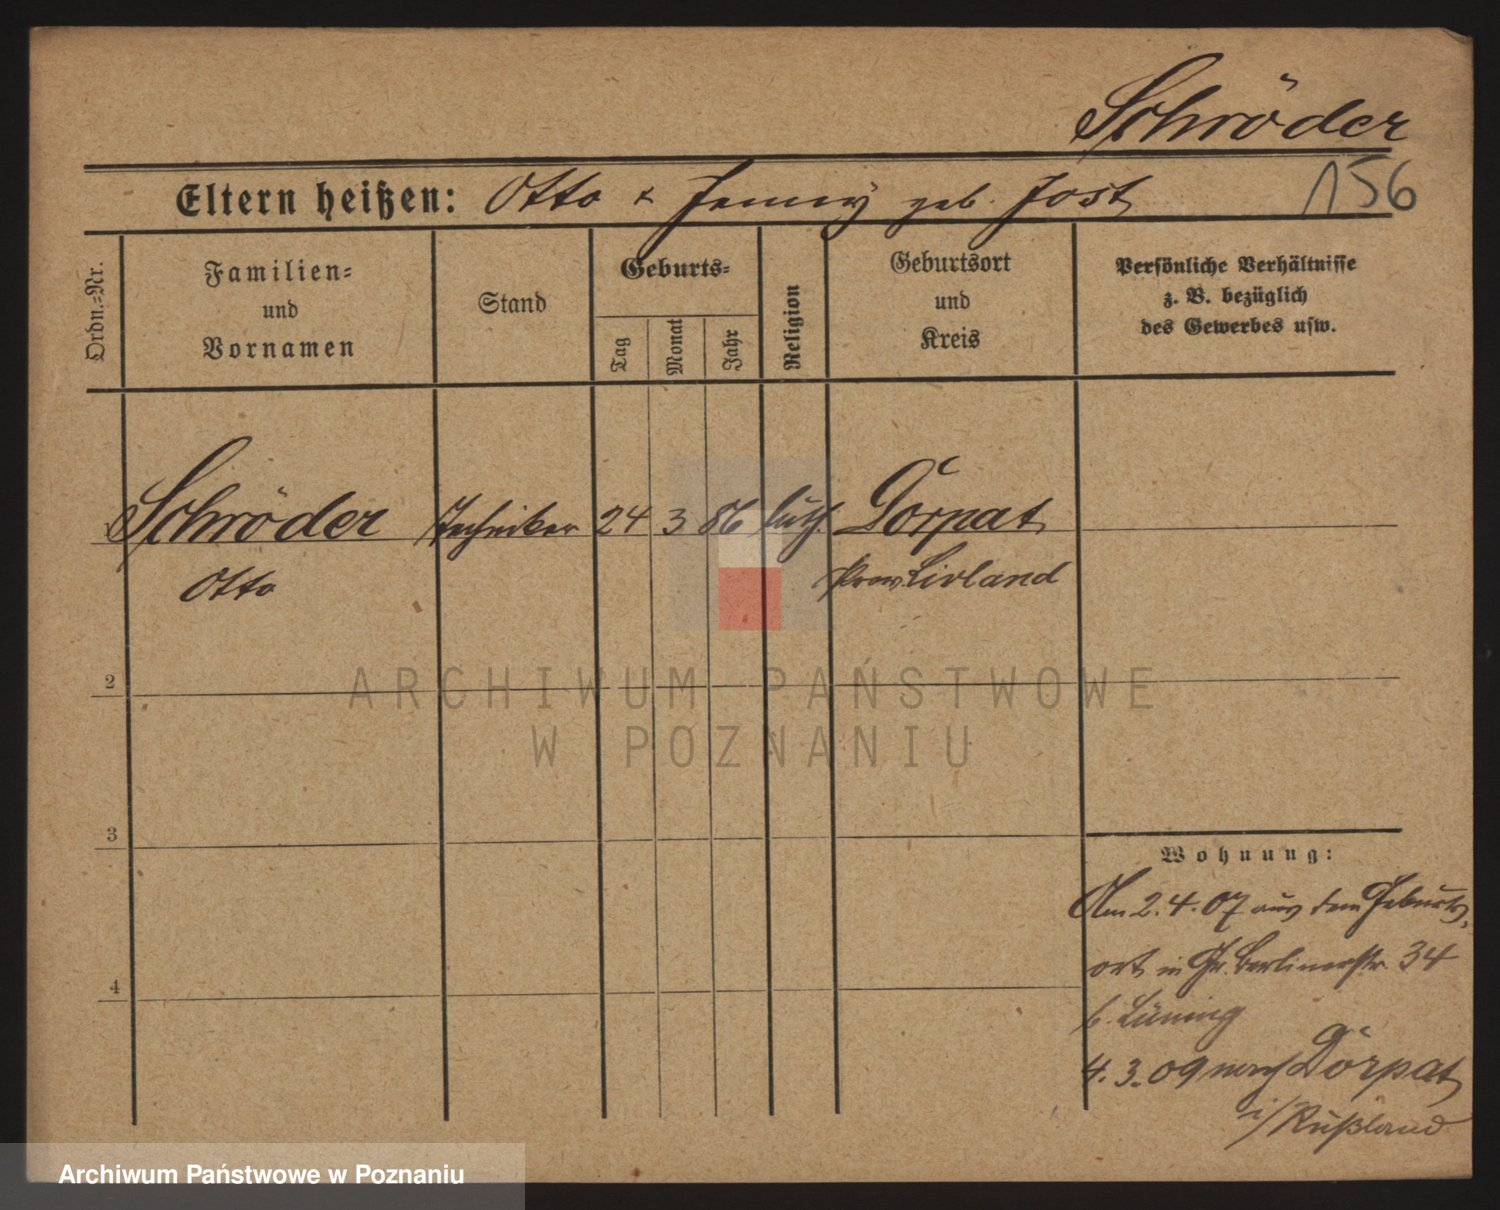 Schröder
156
Eltern heißen: Otto & Jenny geb. Jost
Ordn.=Nr.
Familien=
und
Vornamen
Stand
Geburts=
Tag
Monat
Jahr
Religion
Geburtsort
und
Kreis
Persönliche Verhältnisse
z. B. bezüglich
des Gewerbes usw.
Schröder Techniker 24 3 86 luth. Dorpat
Otto Prov. Livland
2
3
4
Wohnung:
Am 2.4.07 aus dem Geburts-
ort in Gr. Berlinerstr. 34
b. Lüning
4.3.09 nach Dörpat
i/Rußland
ARCHIWUM PAŃSTWOWE
W POZNANIU
Archiwum Państwowe w Poznaniu